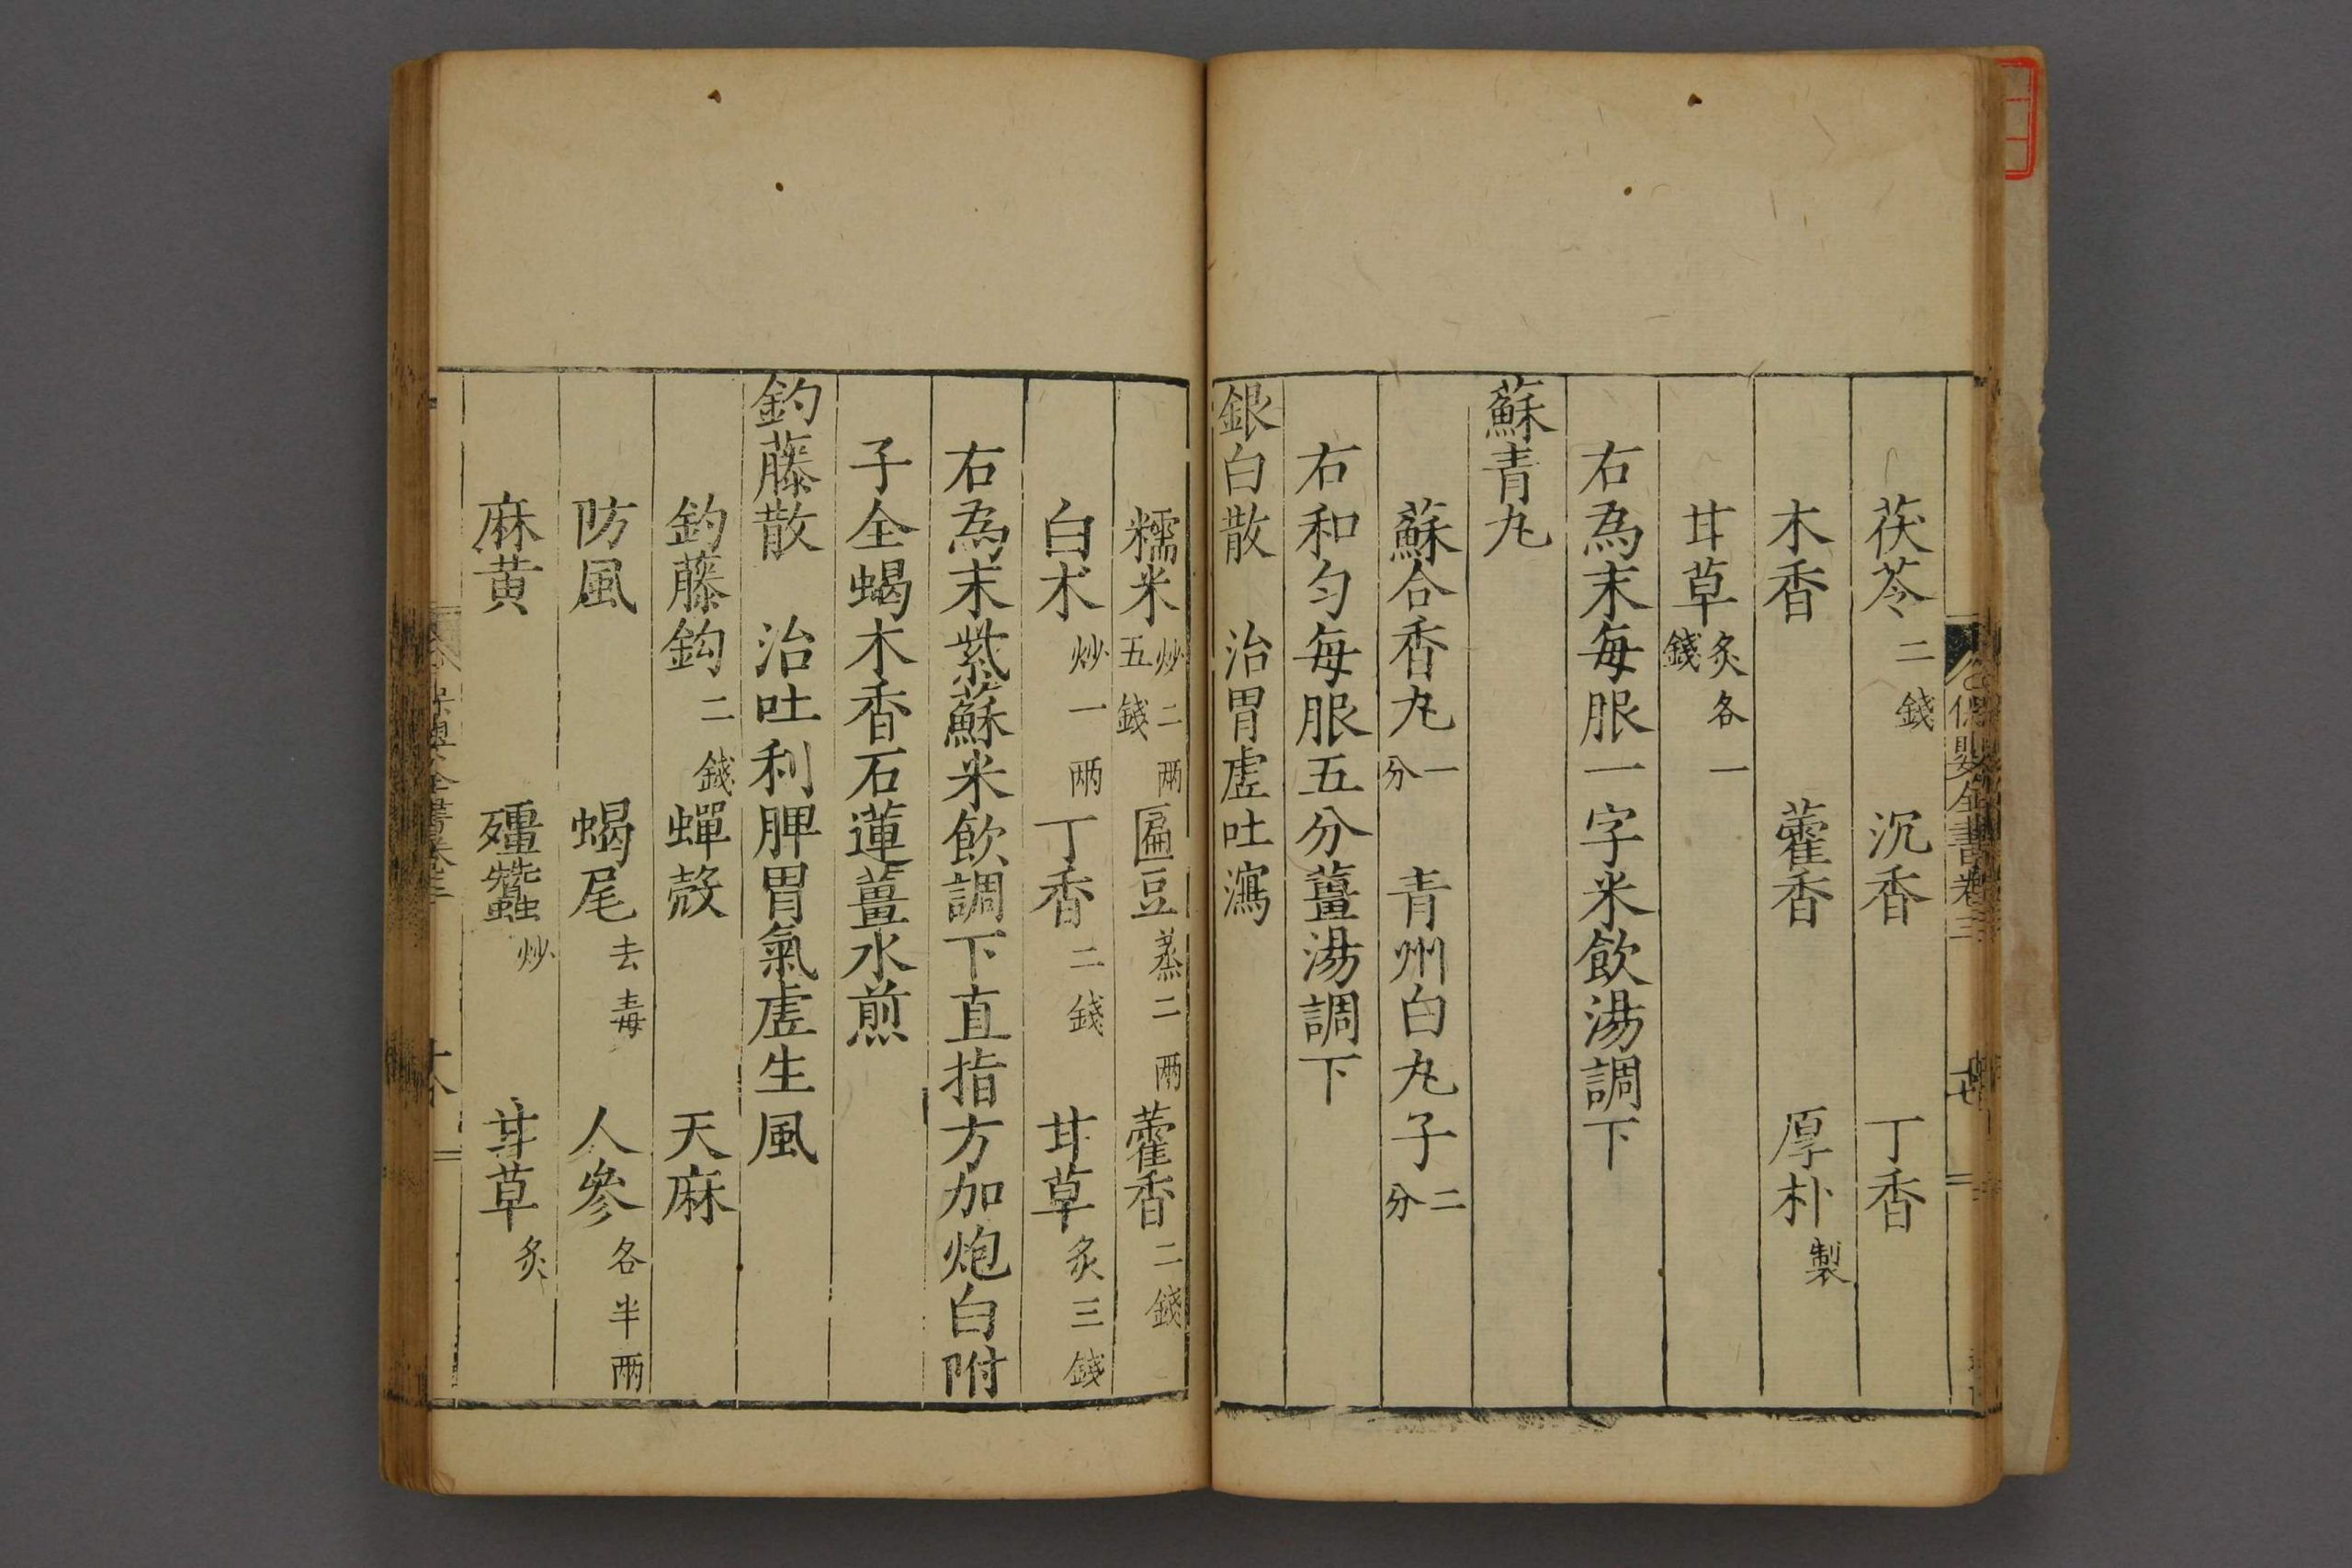 保嬰全書卷三
茯苓二錢 沉香 丁香
木香 藿香 厚朴製
甘草炙各一錢
右為末每服一字米飲湯調下
蘇青丸
蘇合香丸一分 青州白丸子二分
右和勻每服五分薑湯調下
銀白散 治胃虛吐瀉
糯米炒二兩五錢 匾豆蒸二兩 藿香二錢
白朮炒一兩 丁香二錢 甘草炙三錢
右為末紫蘇米飲調下直指方加炮白附
子全蝎木香石蓮薑水煎
釣藤散 治吐利脾胃氣虛生風
釣藤鈎二錢 蟬殼 天麻
防風 蝎尾去毒 人參各半兩
麻黄 殭蠶炒 甘草炙